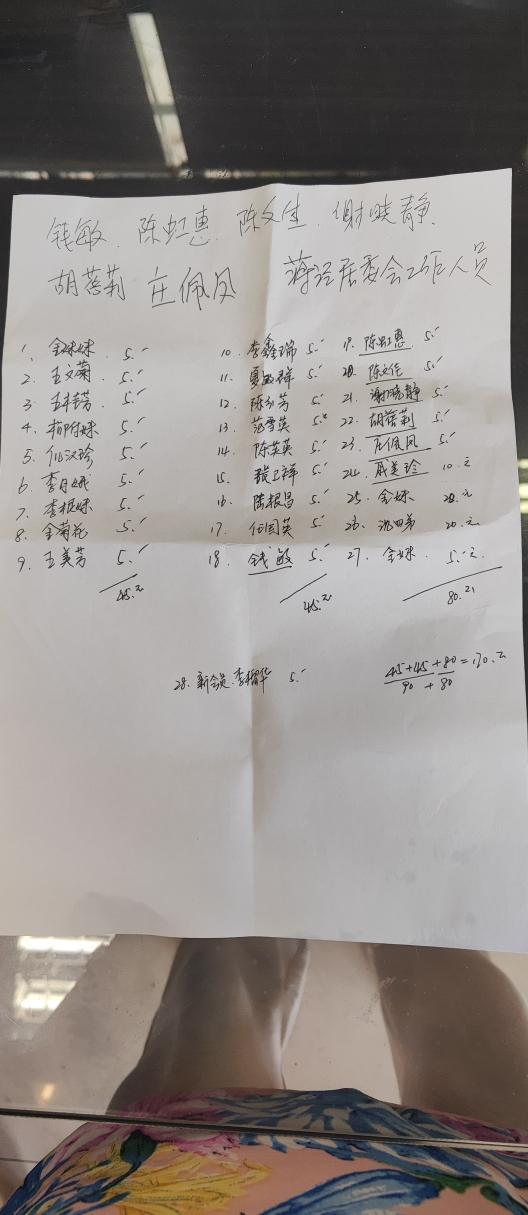 钱敏、陈虹惠、陈文生、谢晓静、
胡蓓莉 庄佩凤 蒋泾居委会工作人员
1、金妹妹 5.-
2、王文菊 5.-
3 王丰芳 5.-
4、 5.-
5、仉汉珍 5.-
6、李月娥 5.-
7、李根妹 5.-
8、金菊花 5.-
9、王美芳 5.-
45.元
10、李鑫瑞 5.-
11、夏 群 5.-
12、陈 芳 5.-
13、范雪英 5.元
14、陈英英 5.-
15、张卫祥 5.-
16、陆根昌 5.-
17、何国英 5.-
18、钱敏 5.-
45.元
19、陈虹惠 5.-
20、陈文 5.-
21、谢晓静 5.-
22、胡蓓莉 5.-
23、庄佩凤 5.-
24、戚美珍 10.元
25、金妹 20.元
26、沈四弟 20.元
27、金妹 5.元
80.元
28、新会员 李 华 5.-
45+45+80=170.元
90 + 80